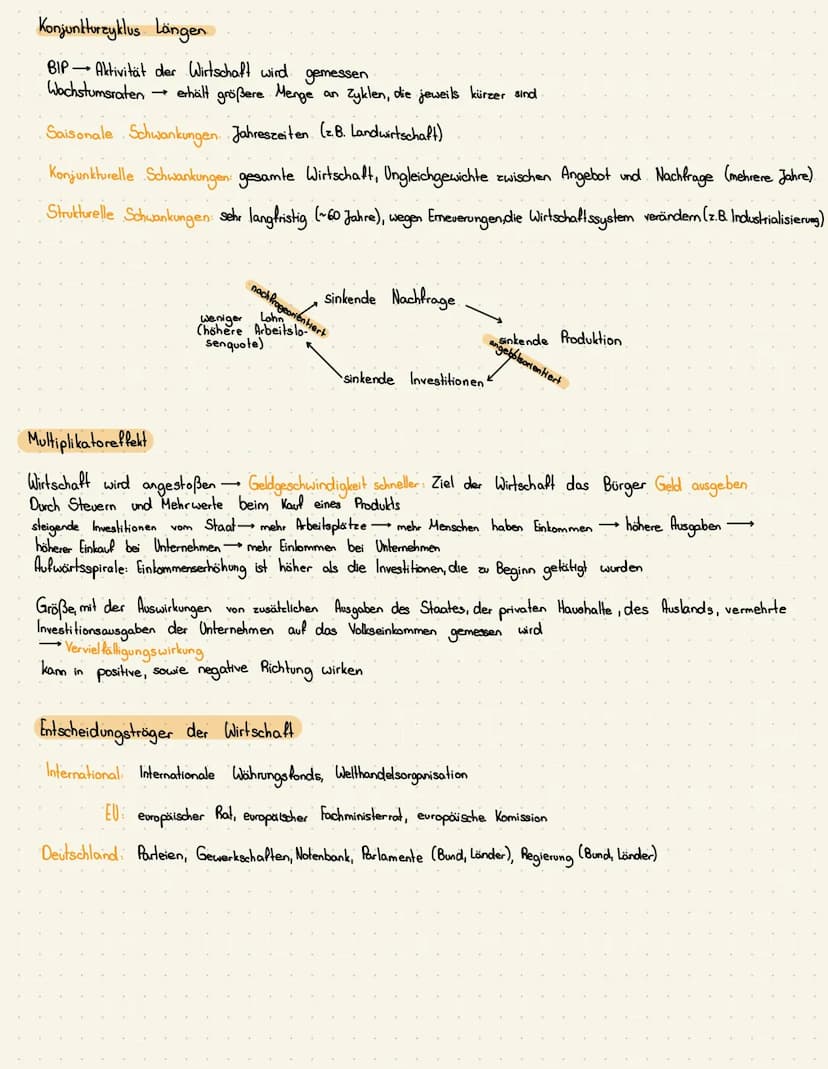 Konjunkturzyklus Längen
BIP → Aktivität der Wirtschaft wird gemessen
Wachstumsraten → erhält größere Menge an Zyklen, die jeweils kürzer sind
Saisonale Schwankungen: Jahreszeiten (z.B. Landwirtschaft)
Konjunkturelle Schwankungen: gesamte Wirtschaft, Ungleichgewichte zwischen Angebot und Nachfrage (mehrere Jahre)
Strukturelle Schwankungen: sehr langfristig (~60 Jahre), wegen Erneuerungen, die Wirtschaftssystem verändern (z.B. Industrialisierung)
nachfrageorientiert
sinkende Nachfrage
weniger Lohn
(höhere Arbeitslo-
senquote)
sinkende Produktion
angebotsorientiert
sinkende Investitionen
Multiplikatoreffekt
Wirtschaft wird angestoßen → Geldgeschwindigkeit schneller: Ziel der Wirtschaft das Bürger Geld ausgeben
Durch Steuern und Mehrwerte beim Kauf eines Produkts
steigende Investitionen vom Staat → mehr Arbeitsplätze → mehr Menschen haben Einkommen → höhere Ausgaben →
höherer Einkauf bei Unternehmen → mehr Einkommen bei Unternehmen
Aufwärtsspirale: Einkommenserhöhung ist höher als die Investitionen, die zu Beginn getätigt wurden
Größe, mit der Auswirkungen von zusätzlichen Ausgaben des Staates, der privaten Haushalte, des Auslands, vermehrte
Investitionsausgaben der Unternehmen auf das Volkseinkommen gemessen wird
→ Vervielfältigungswirkung
kann in positive, sowie negative Richtung wirken
Entscheidungsträger der Wirtschaft
International: Internationale Währungsfonds, Welthandelsorganisation
EU: europäischer Rat, europäischer Fachministerrat, europäische Komission
Deutschland: Parteien, Gewerkschaften, Notenbank, Parlamente (Bund, Länder), Regierung (Bund, Länder)